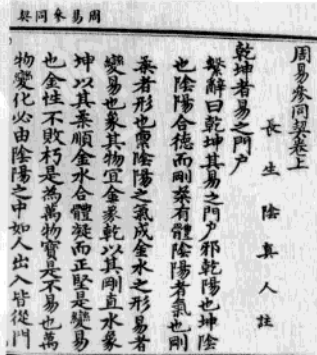 周易參同契
周易參同契卷上
長生陰真人註
乾坤者易之門戶
繫辭曰乾坤其易之門戶邪乾陽也坤陰
也陰陽合德而剛柔有體陰陽者氣也剛
柔者形也禀陰陽之氣成金水之形易者
變易也象其物宜金象乾以其剛直水象
坤以其柔順金水合體凝而正堅是變易
也金性不敗朽是為萬物寶是不易也萬
物變化必由陰陽之中如人出入皆從門